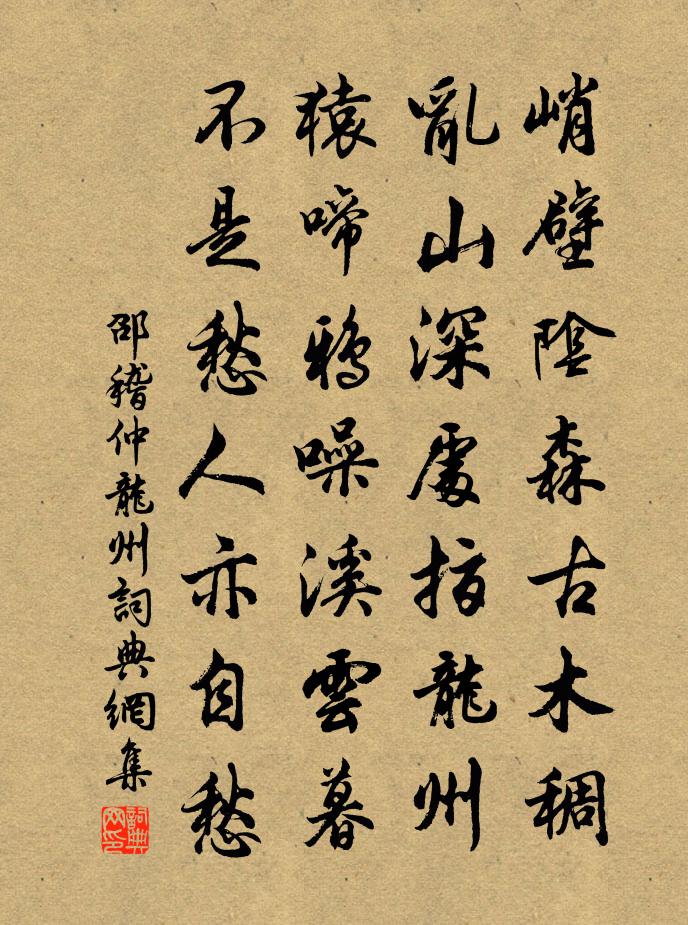 峭壁陰森古木稠
亂山深處指龍州
猿啼鴉噪溪雲暮
不是愁人亦自愁
邵稽仲龍州詞典網集
詞典网印